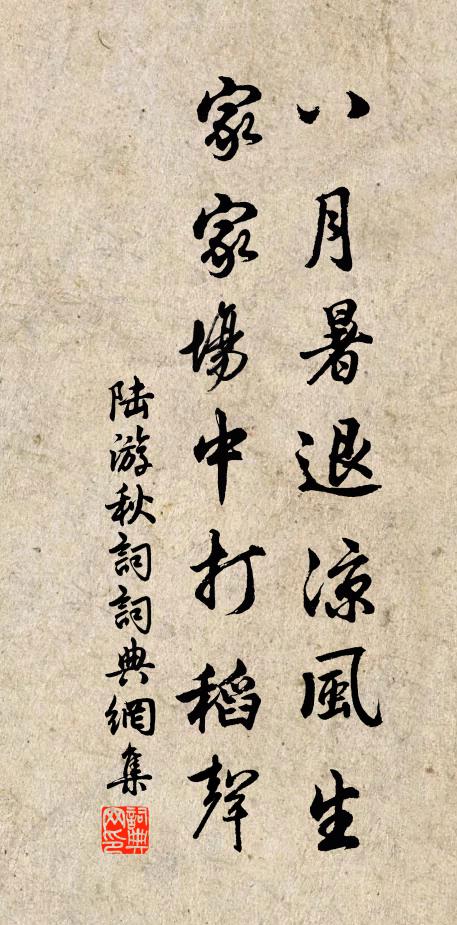 八月暑退涼風生
家家場中打稻聲
陆游秋詞詞典網集
詞典網印